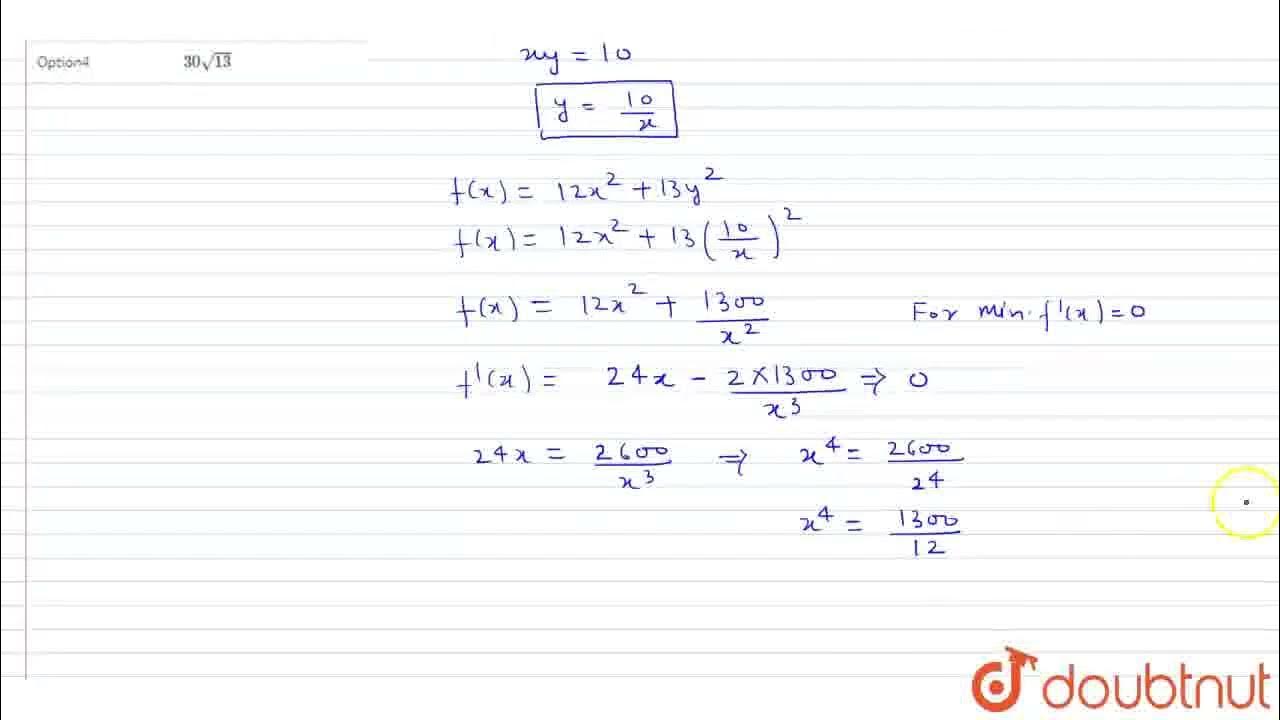 Option4 30√13
xy = 10
y = 10/x
f(x) = 12x² + 13y²
f(x) = 12x² + 13(10/x)²
f(x) = 12x² + 1300/x² For min. f'(x) = 0
f'(x) = 24x - 2×1300/x³ ⇒ 0
24x = 2600/x³ ⇒ x⁴ = 2600/24
x⁴ = 1300/12
doubtnut